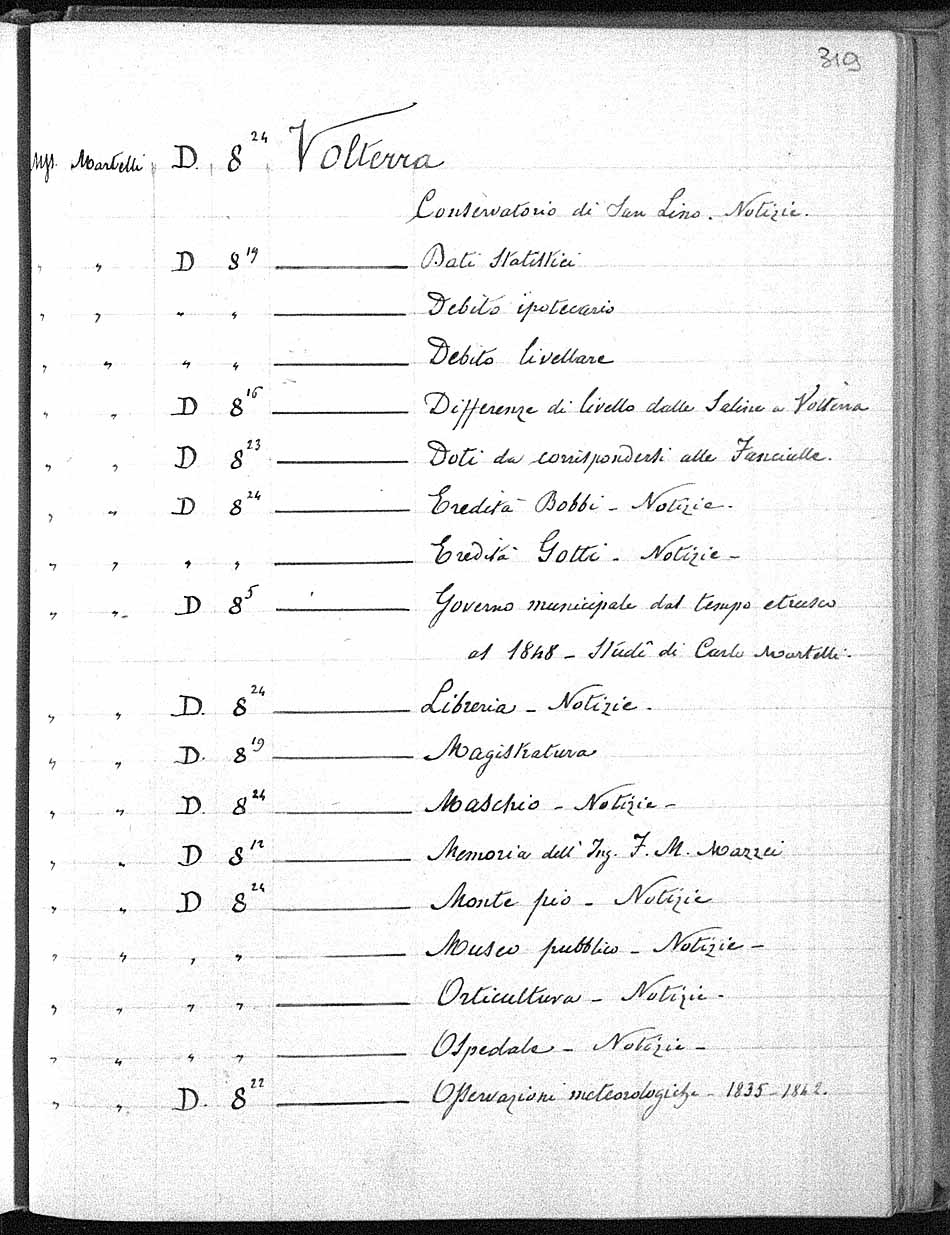 319
Mss. Martelli D. 8²⁴ Volterra
Conservatorio di San Lino. Notizie.
" " D 8¹⁹ ——— Dati Statistici
" " " " ——— Debito ipotecario
" " " " ——— Debito livellare
" " D 8¹⁶ ——— Differenze di livello dalle Saline a Volterra
" " D 8²³ ——— Doti da corrispondersi alle Fanciulle.
" " D 8²⁴ ——— Eredità Bobbi - Notizie.
" " " " ——— Eredità Gotti - Notizie -
" " D 8⁵ ——— Governo municipale dal tempo etrusco
al 1848 - Studî di Carlo Martelli.
" " D. 8²⁴ ——— Libreria - Notizie.
" " D. 8¹⁹ ——— Magistratura
" " D. 8²⁴ ——— Maschio - Notizie -
" " D 8¹² ——— Memoria dell' Ing. F. M. Mazzei
" " D 8²⁴ ——— Monte pio - Notizie
" " " " ——— Museo pubblico - Notizie -
" " " " ——— Orticultura - Notizie.
" " " " ——— Ospedale - Notizie -
" " D. 8²² ——— Osservazioni meteorologiche - 1835 - 1842.